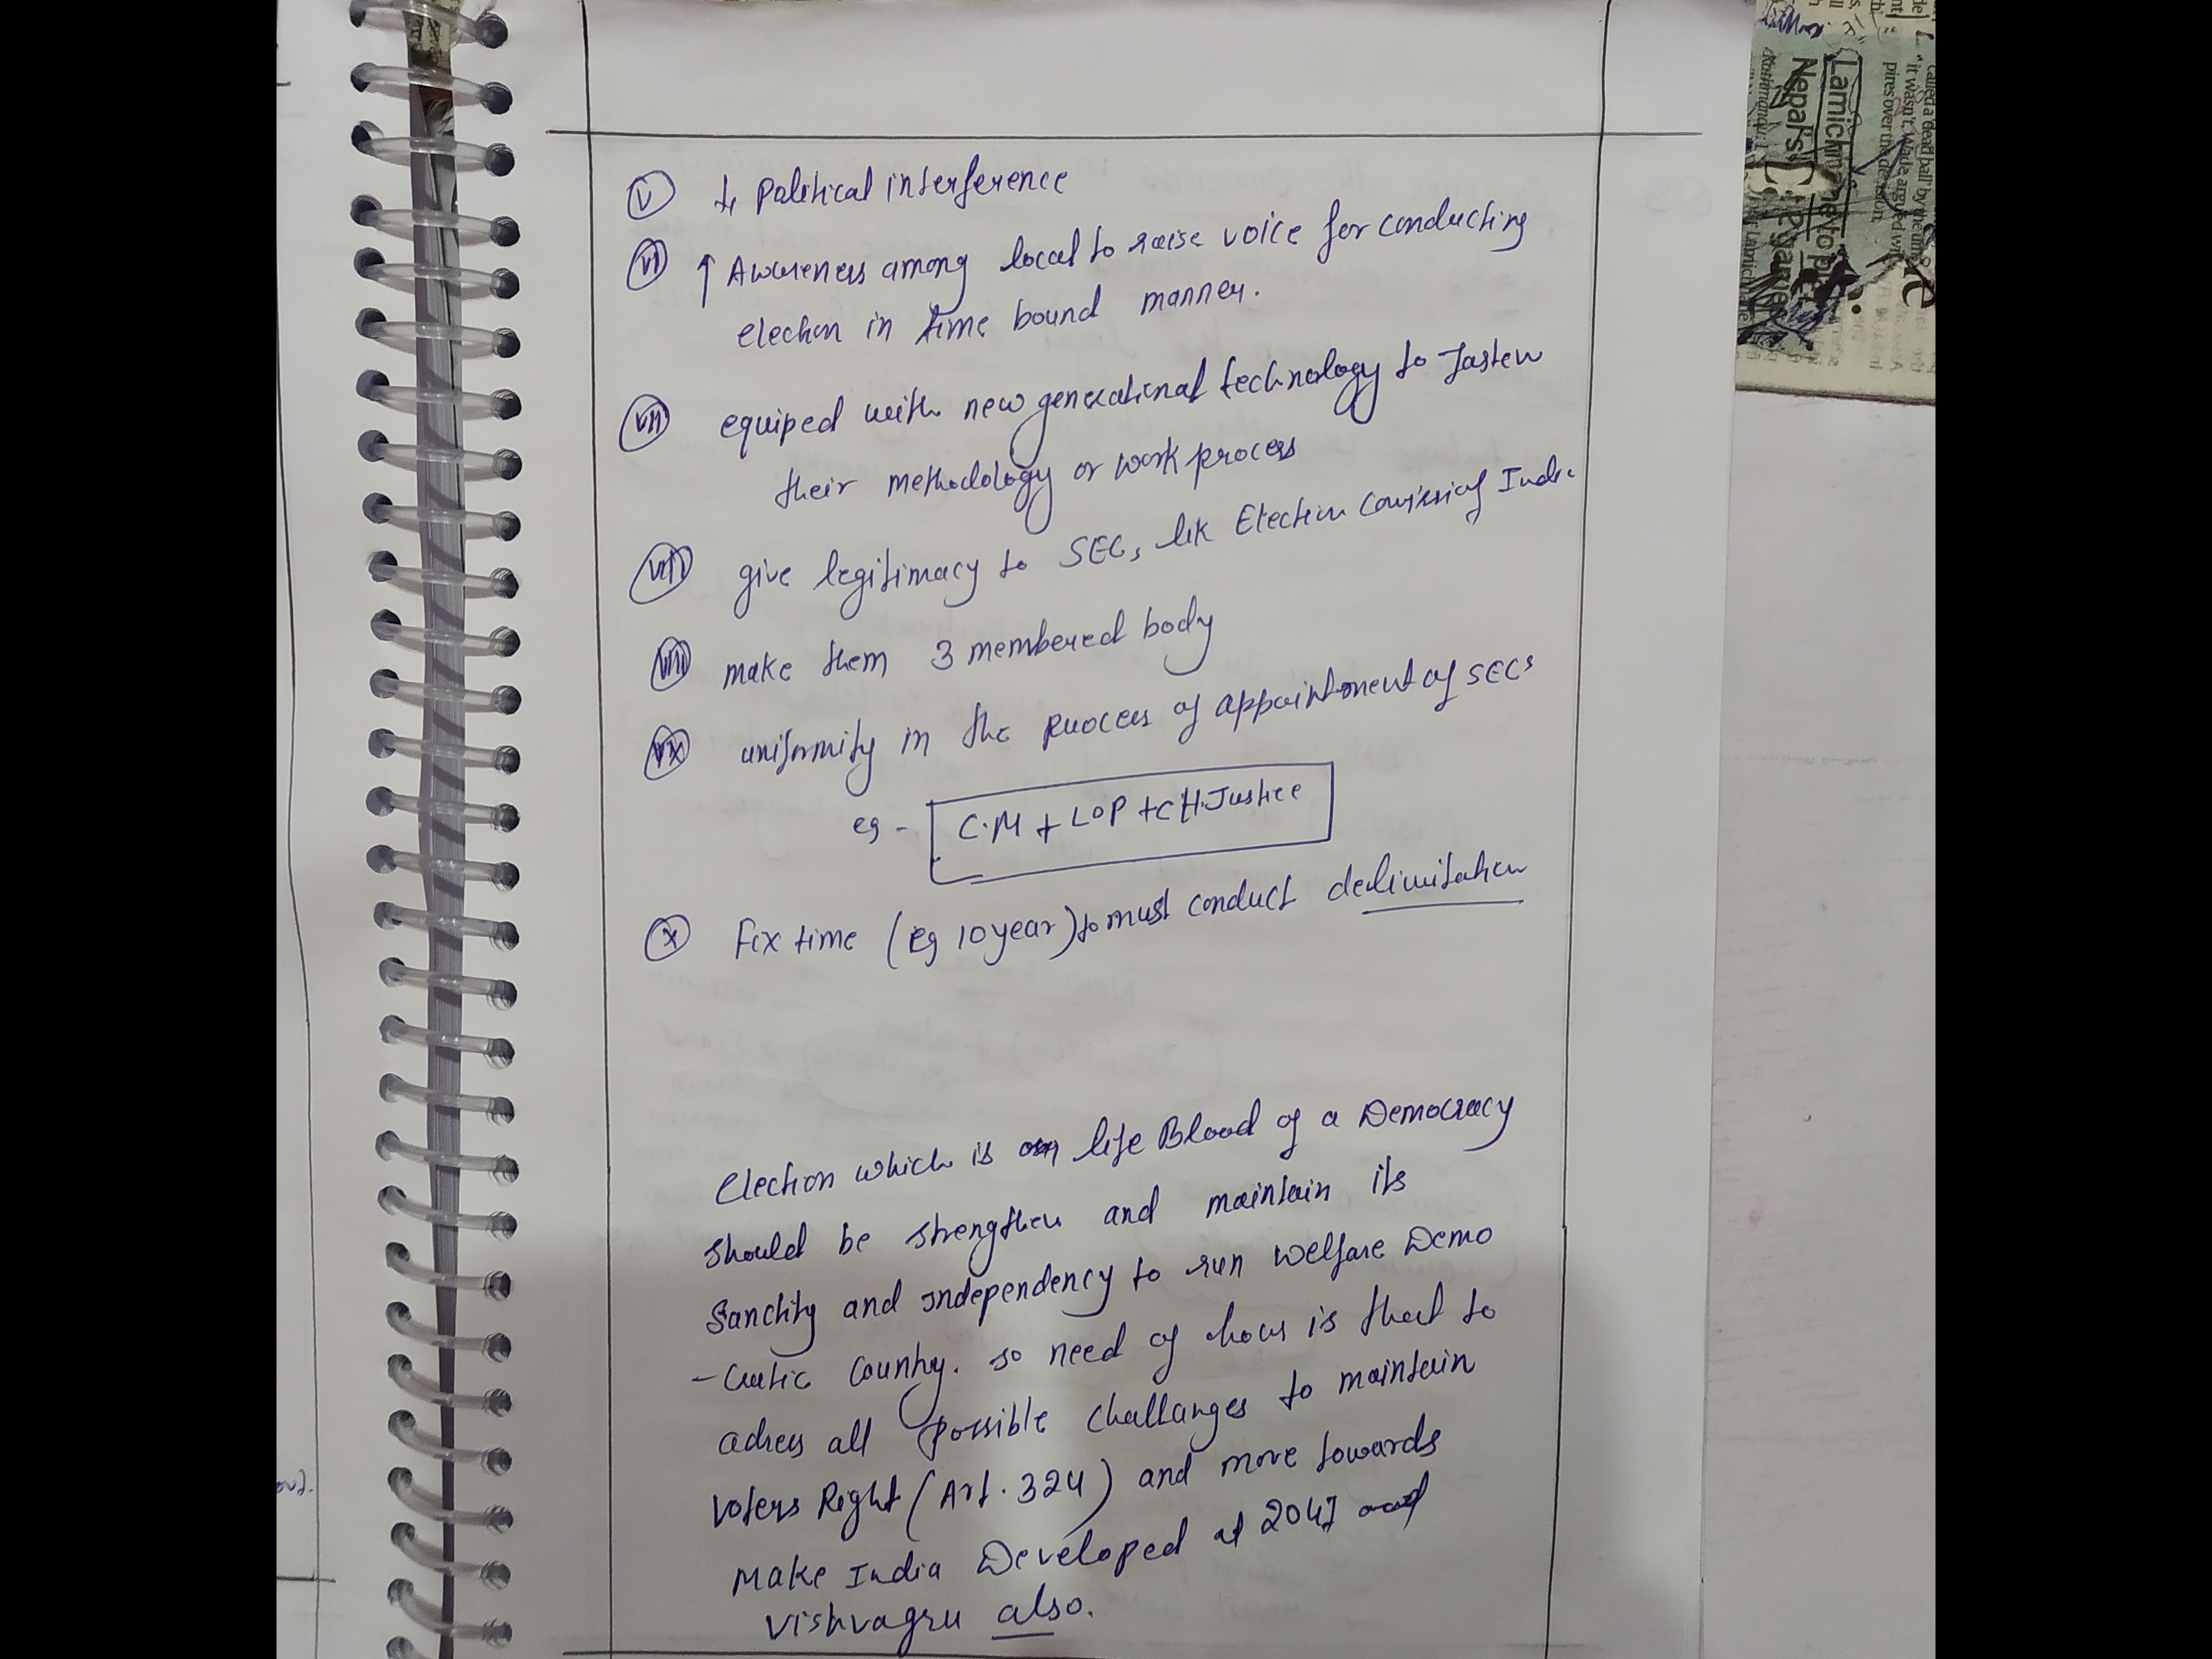 (v) ↓ Political interference
(vi) ↑ Awareness among local to raise voice for conducting
election in time bound manner.
(vii) equiped with new generational technology to fasten
their methodology or work process
(viii) give legitimacy to SEC, lik Election Commission of India
(viii) make them 3 membered body
(ix) uniformity in the process of appointment of SECs
eg - C.M + LOP + CH.Justice
(x) Fix time (eg 10 year) to must conduct delimitation
Election which is life Blood of a Democracy
should be strengthen and maintain its
Sanctity and independency to run welfare Demo
-cratic Country. so need of hour is that to
adress all possible challanges to maintain
voters Right (Art. 324) and move towards
make India Developed at 2047 and
vishvagru also.
Lamichhane to pl
Nepal's
called a dead ball by the um
it wasn't, Wade argued wi
pires over the decision.
Kathmandu